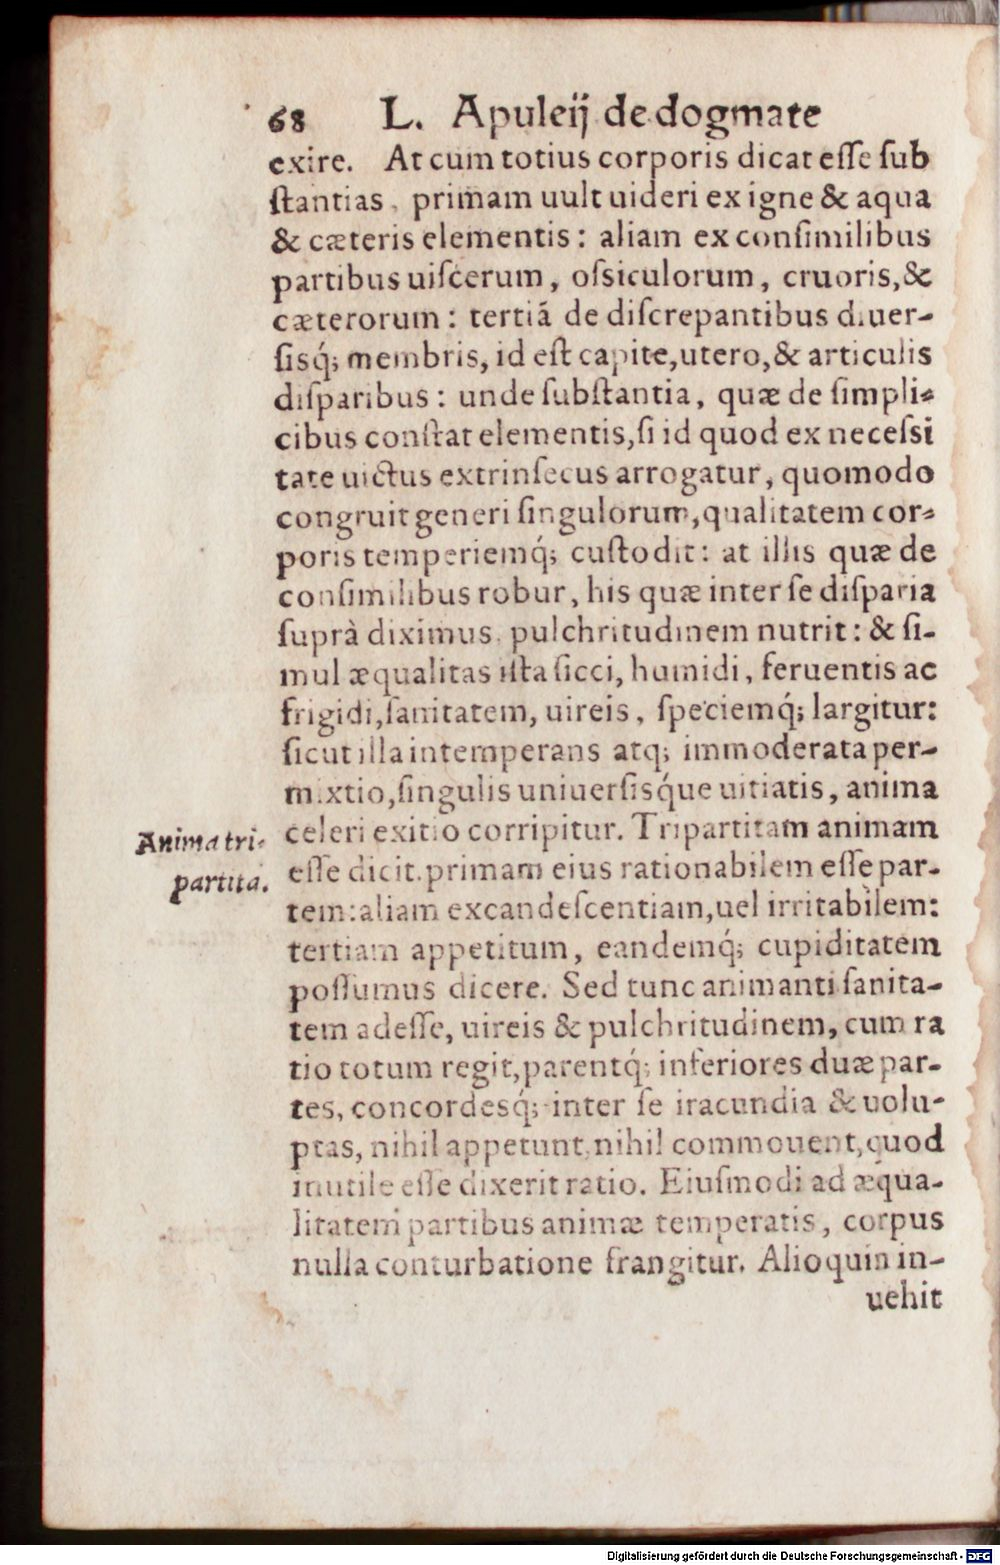 68 L. Apuleij de dogmate
exire. At cum totius corporis dicat eſſe ſub
ſtantias, primam uult uideri ex igne & aqua
& cæteris elementis: aliam ex conſimilibus
partibus uiſcerum, oſsiculorum, cruoris, &
cæterorum: tertiã de diſcrepantibus diuer-
ſisq́; membris, id eſt capite, utero, & articulis
diſparibus: unde ſubſtantia, quæ de ſimpli-
cibus conſtat elementis, ſi id quod ex neceſsi
tate uictus extrinſecus arrogatur, quomodo
congruit generi ſingulorum, qualitatem cor-
poris temperiemq́; cuſtodit: at illis quæ de
conſimilibus robur, his quæ inter ſe diſparia
ſuprà diximus, pulchritudinem nutrit: & ſi-
mul æqualitas iſta ſicci, humidi, feruentis ac
frigidi, ſanitatem, uireis, ſpeciemq́; largitur:
ſicut illa intemperans atq; immoderata per-
mixtio, ſingulis uniuerſisq́ue uitiatis, anima
celeri exitio corripitur. Tripartitam animam
Anima tri-
partita.
eſſe dicit. primam eius rationabilem eſſe par-
tem: aliam excandeſcentiam, uel irritabilem:
tertiam appetitum, eandemq́; cupiditatem
poſſumus dicere. Sed tunc animanti ſanita-
tem adeſſe, uireis & pulchritudinem, cum ra
tio totum regit, parentq́; inferiores duæ par-
tes, concordesq́; inter ſe iracundia & uolu-
ptas, nihil appetunt, nihil commouent, quod
inutile eſſe dixerit ratio. Eiuſmodi ad æqua-
litatem partibus animæ temperatis, corpus
nulla conturbatione frangitur. Alioquin in-
uehit
Digitalisierung gefördert durch die Deutsche Forschungsgemeinschaft - DFG